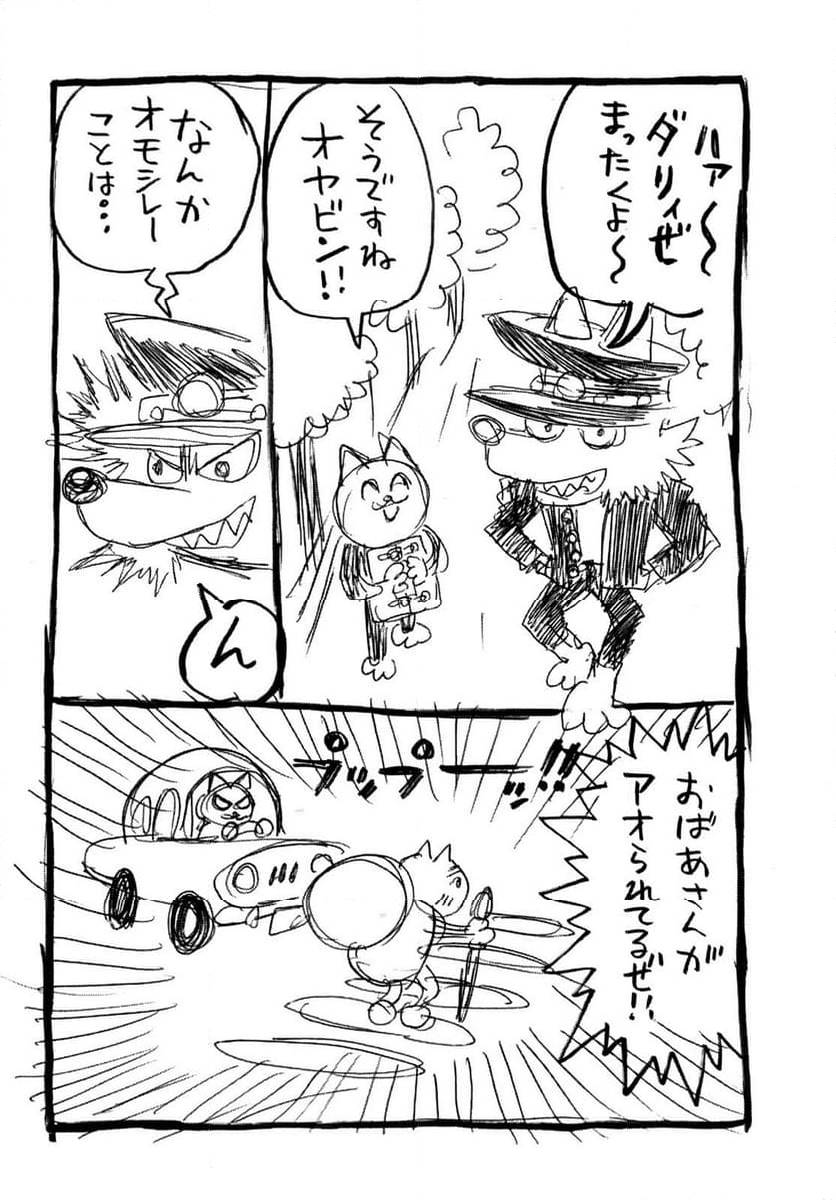 ハァ〜
ダリィぜ
まったくよ〜
そうですね
オヤビン!!
なんか
オモシレー
ことは・・・
ん
ブップーッ!!
おばあさんが
アオられてるぜ!!